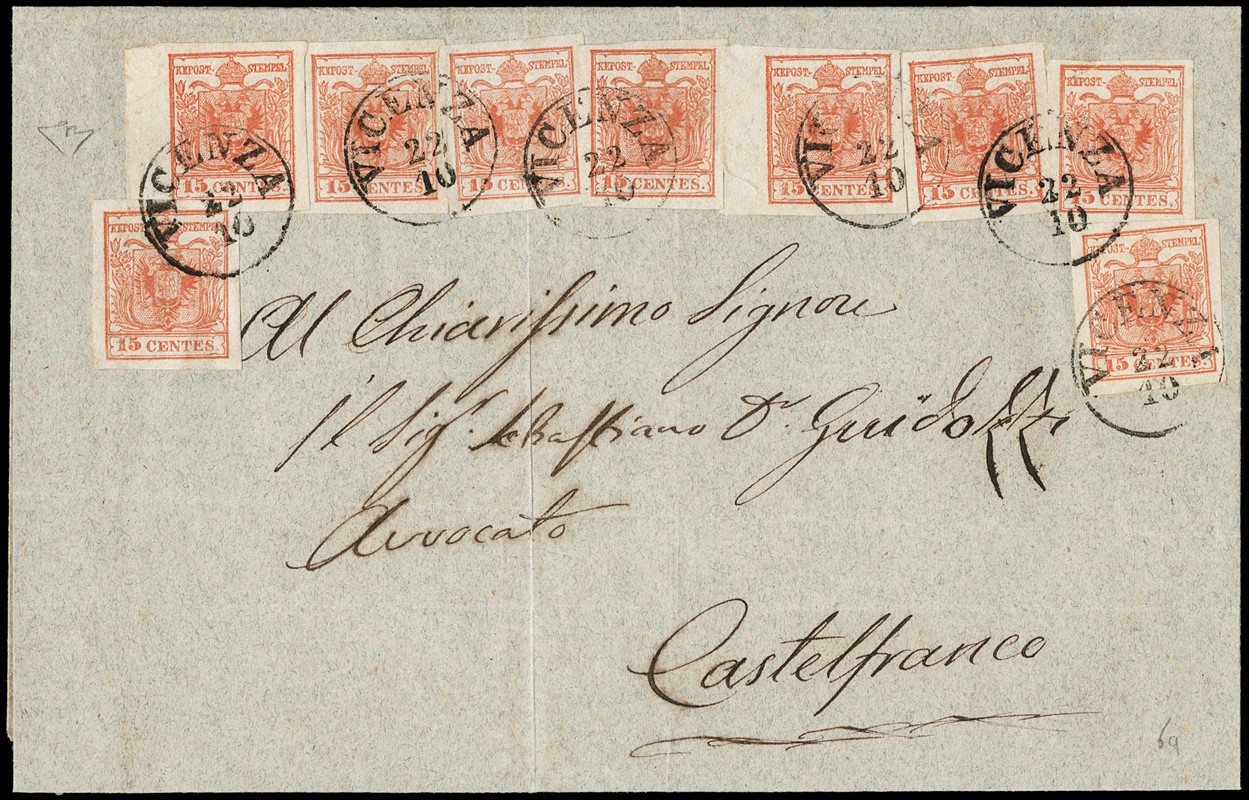 KKPOST-STEMPEL KKPOST-STEMPEL KKPOST-STEMPEL KKPOST-STEMPEL KKPOST-STEMPEL KKPOST-STEMPEL KKPOST-STEMPEL
15 CENTES. 15 CENTES. 15 CENTES. 15 CENTES. 15 CENTES. 15 CENTES. 15 CENTES.
VICENZA VICENZA VICENZA VICENZA VICENZA
22 22 22 22 22
10 10 10 10 10
KKPOST-STEMPEL
15 CENTES.
KKPOST-STEMPEL
15 CENTES.
VICENZA
22
10
Al Chiarissimo Signore
Il Sig.r Sebastiano Dr. Guidotti
Avvocato
Castelfranco